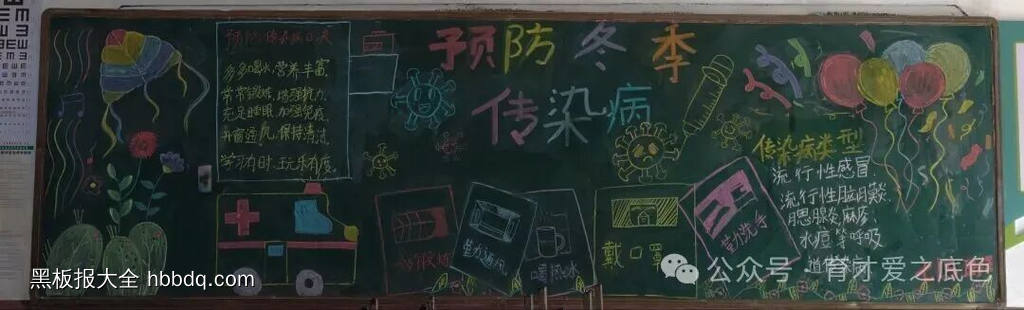 预防传染病口诀
多多喝水,营养丰富,
常常锻炼,增强抵力,
充足睡眠,加强免疫,
开窗透风,保持清洁,
学习有时,玩乐有度。
预防冬季
传染病
传染病类型
流行性感冒
流行性脑膜炎
腮腺炎麻疹、
水痘等呼吸
道
勤洗手
戴口罩
黑板报大全 hbbdq.com
公众号·育才爱之底色